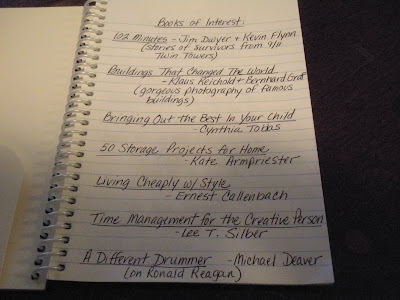 Books of Interest:
102 Minutes - Jim Dwyer + Kevin Flynn
(stories of survivors from 9/11
Twin Towers)
Buildings That Changed The World
- Klaus Reichold + Bernhard Graf
(gorgeous photography of famous
buildings)
Bringing Out the Best In Your Child
- Cynthia Tobias
50 Storage Projects for Home
- Kate Armpriester
Living Cheaply w/ Style
- Ernest Callenbach
Time Management for the Creative Person
- Lee T. Silber
A Different Drummer - Michael Deaver
(on Ronald Reagan)